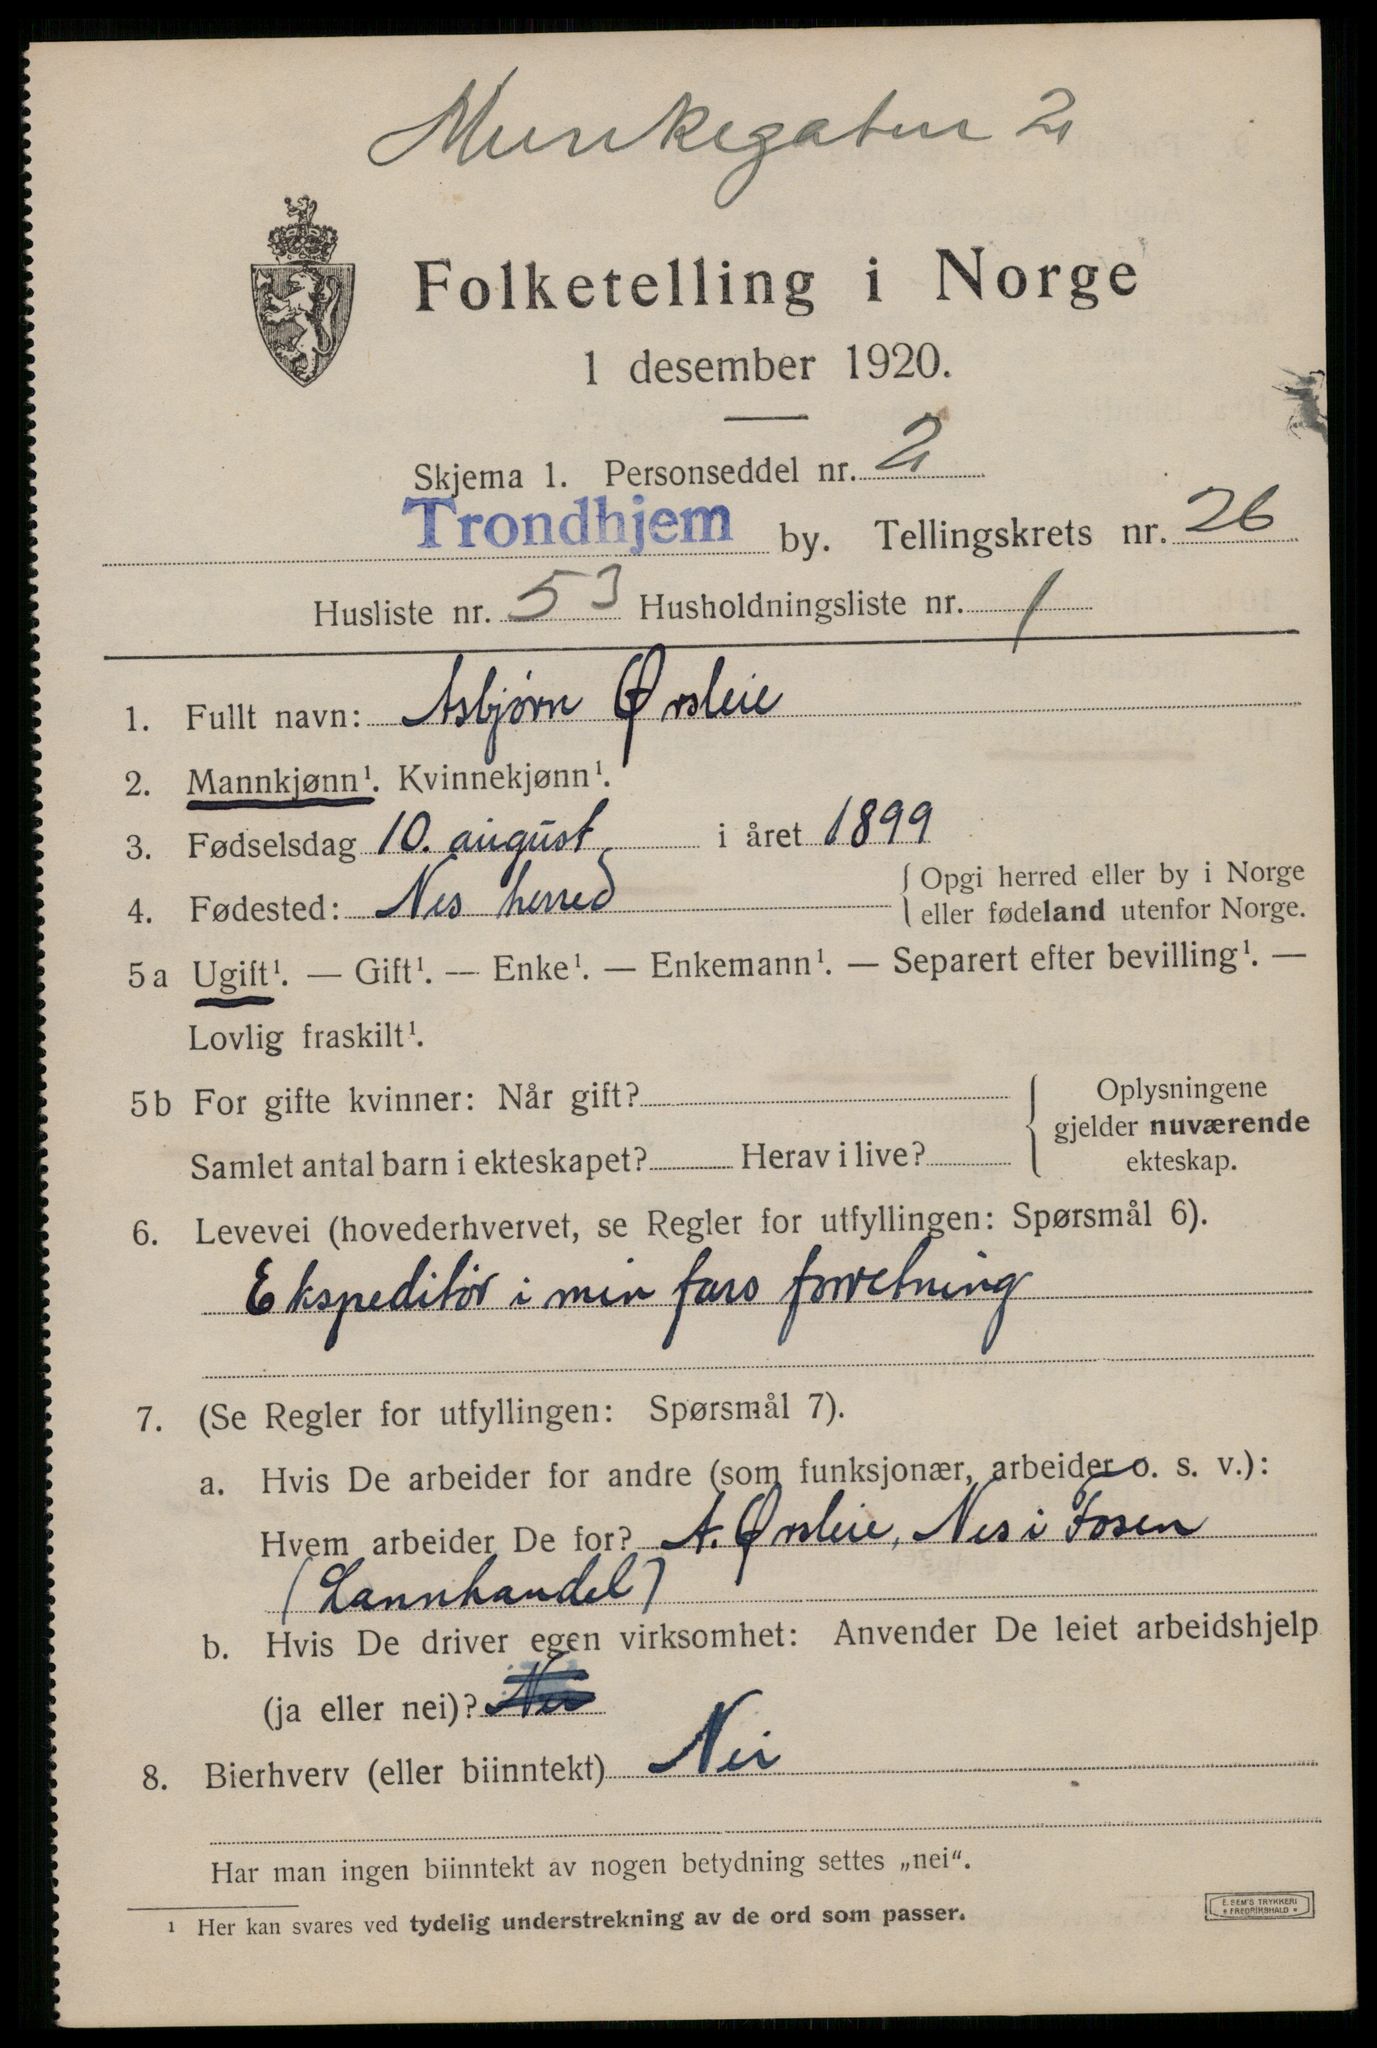 Munkegaten 2
Folketelling i Norge
1 desember 1920.
Skjema 1. Personseddel nr. 2
Trondhjem by. Tellingskrets nr. 26
Husliste nr. 53 Husholdningsliste nr. 1
1. Fullt navn: Asbjørn Ørsleie
2. Mannkjønn¹. Kvinnekjønn¹.
3. Fødselsdag 10. august i året 1899
4. Fødested: Nes herred { Opgi herred eller by i Norge
eller fødeland utenfor Norge.
5a Ugift¹. — Gift¹. — Enke¹. — Enkemann¹. — Separert efter bevilling¹. —
Lovlig fraskilt¹.
5b For gifte kvinner: Når gift?
Samlet antal barn i ekteskapet? Herav i live?
Oplysningene
gjelder nuværende
ekteskap.
6. Levevei (hovederhvervet, se Regler for utfyllingen: Spørsmål 6).
Ekspeditør i min fars forretning
7. (Se Regler for utfyllingen: Spørsmål 7).
a. Hvis De arbeider for andre (som funksjonær, arbeider o. s. v.):
Hvem arbeider De for? A. Ørsleie, Nes i Fosen
(Lannhandel)
b. Hvis De driver egen virksomhet: Anvender De leiet arbeidshjelp
(ja eller nei)? Nei
8. Bierhverv (eller biinntekt) Nei
Har man ingen biinntekt av nogen betydning settes „nei“.
¹ Her kan svares ved tydelig understrekning av de ord som passer.
E. SEM'S TRYKKERI
FREDRIKSHALD